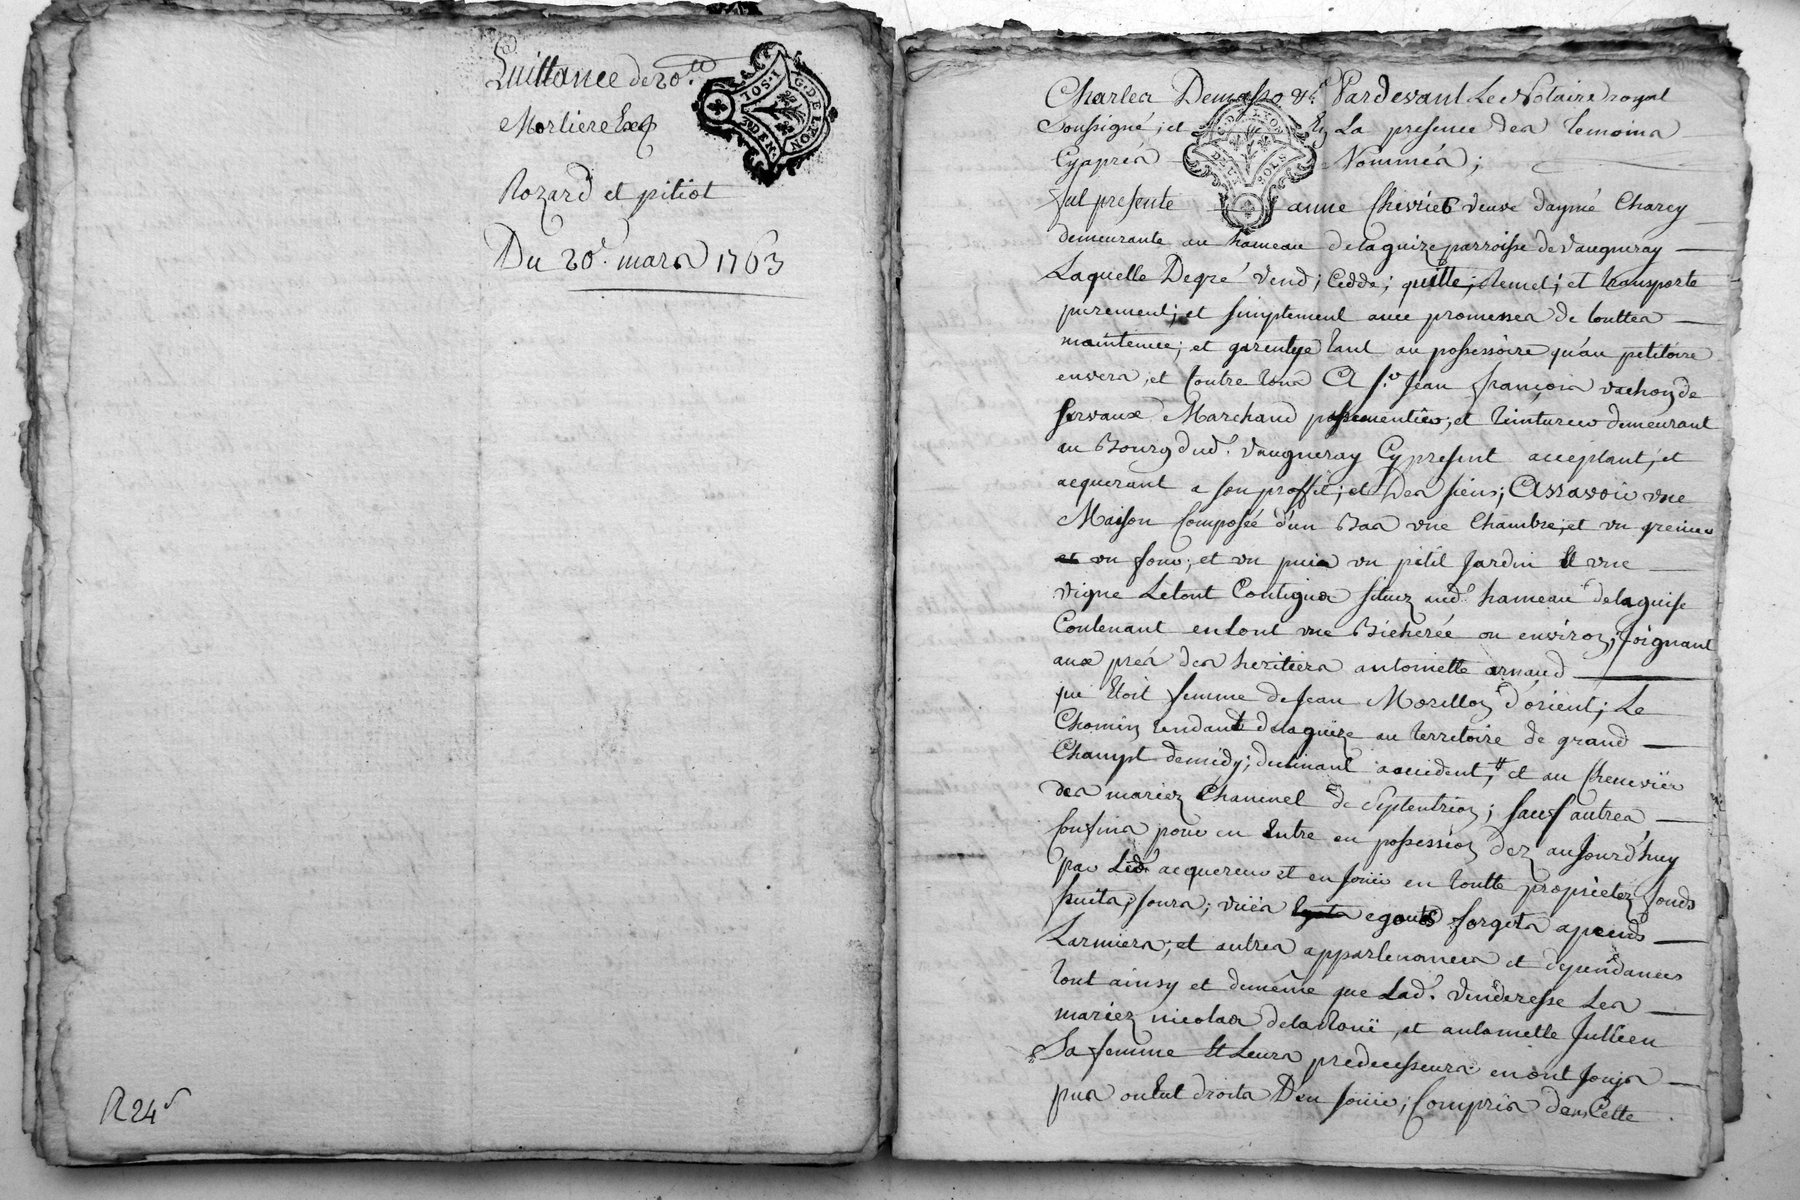 Quittance de 20.tt
Morliere
Rozard et pitiot
Du 20e. mars 1763
G. DE LYON
1 SOL
R 24s
Charles Pardevant Le Notaire royal
soussigné; et En La presence des temoins
Cyaprés Nommés;
G. DE LYON
DEUX SOLS
fut presente anne Chevrier veuve daymé Charcy
demeurante au hameau delaguize parroisse de vaugneray
Laquelle Degré vend; Cedde; quitte; remet; et transporte
purement; et simplement avec promesses de touttes
maintenue; et garentye tant au possessoire qu'au petitoire
envers; et Contre tous A sr. jean françois vachon de
Servaux Marchand passementier; et teinturier demeurant
au Bourg dud. vaugneray Cy present acceptant; et
acquerant a son proffit; et Des siens; Assavoir une
Maison Composée d'un Bas une Chambre; et un grenier
et un four; et un puis un pitit jardin Et une
vigne Letout Contigus situez aud. hameau delaguise
Contenant entout une Bicherée ou environ; joignant
aux prés des heritiers antoinette arnaud
qui Etoit femme de jean Morillon d'orient; Le
Chemin tendant delaguize au territoire de grand
Champt demidy; declinant accident; et au Chenevier
des mariez Chaminel de Septentrion; sauf autres
Confins pour en Entre en possession dez aujourd'huy
par Led. acquereur et en jouir en toutte proprietez fonds
fruits; jours; vuës egouts forgets apends
Larmiers; et autres appartenances et dependances
tout ainsy et demême que Lad. venderesse Les
mariez nicolas delaRouë, et antoinette jullien
Sa femme Et Leurs predecesseurs en ont jouys
pus ou Eut droits D'en jouir; Compris dans Cette